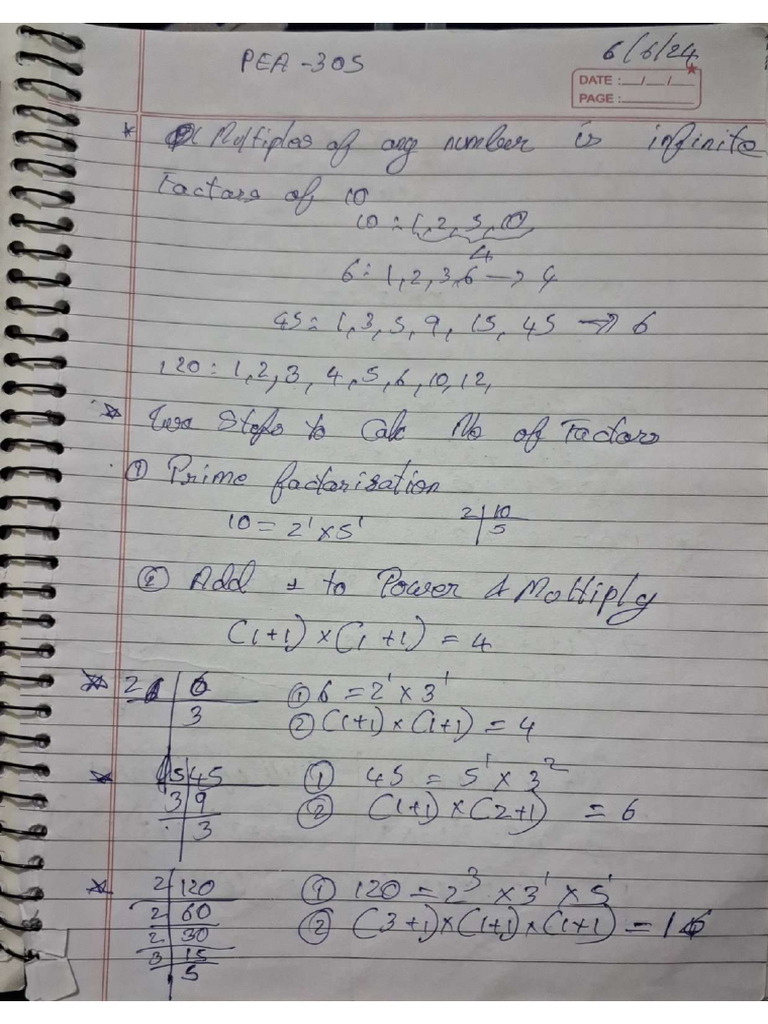 PEA-305
6/6/24
DATE :__/__/__
PAGE :______
* Multiples of any number is infinite
Factors of 10
10 : 1, 2, 5, 10,
4
6 : 1, 2, 3, 6 → 4
45 : 1, 3, 5, 9, 15, 45 → 6
120 : 1, 2, 3, 4, 5, 6, 10, 12,
* Two Steps to Calc No of Factors
① Prime factorization
10 = 2¹ × 5¹
2 | 10
5
② Add 1 to Power & Multiply
(1+1) × (1+1) = 4
* 2 | 6 ① 6 = 2¹ × 3¹
3 ② (1+1) × (1+1) = 4
* 5 | 45 ① 45 = 5¹ × 3²
3 | 9 ② (1+1) × (2+1) = 6
3
* 2 | 120 ① 120 = 2³ × 3¹ × 5¹
2 | 60 ② (3+1) × (1+1) × (1+1) = 16
2 | 30
3 | 15
5